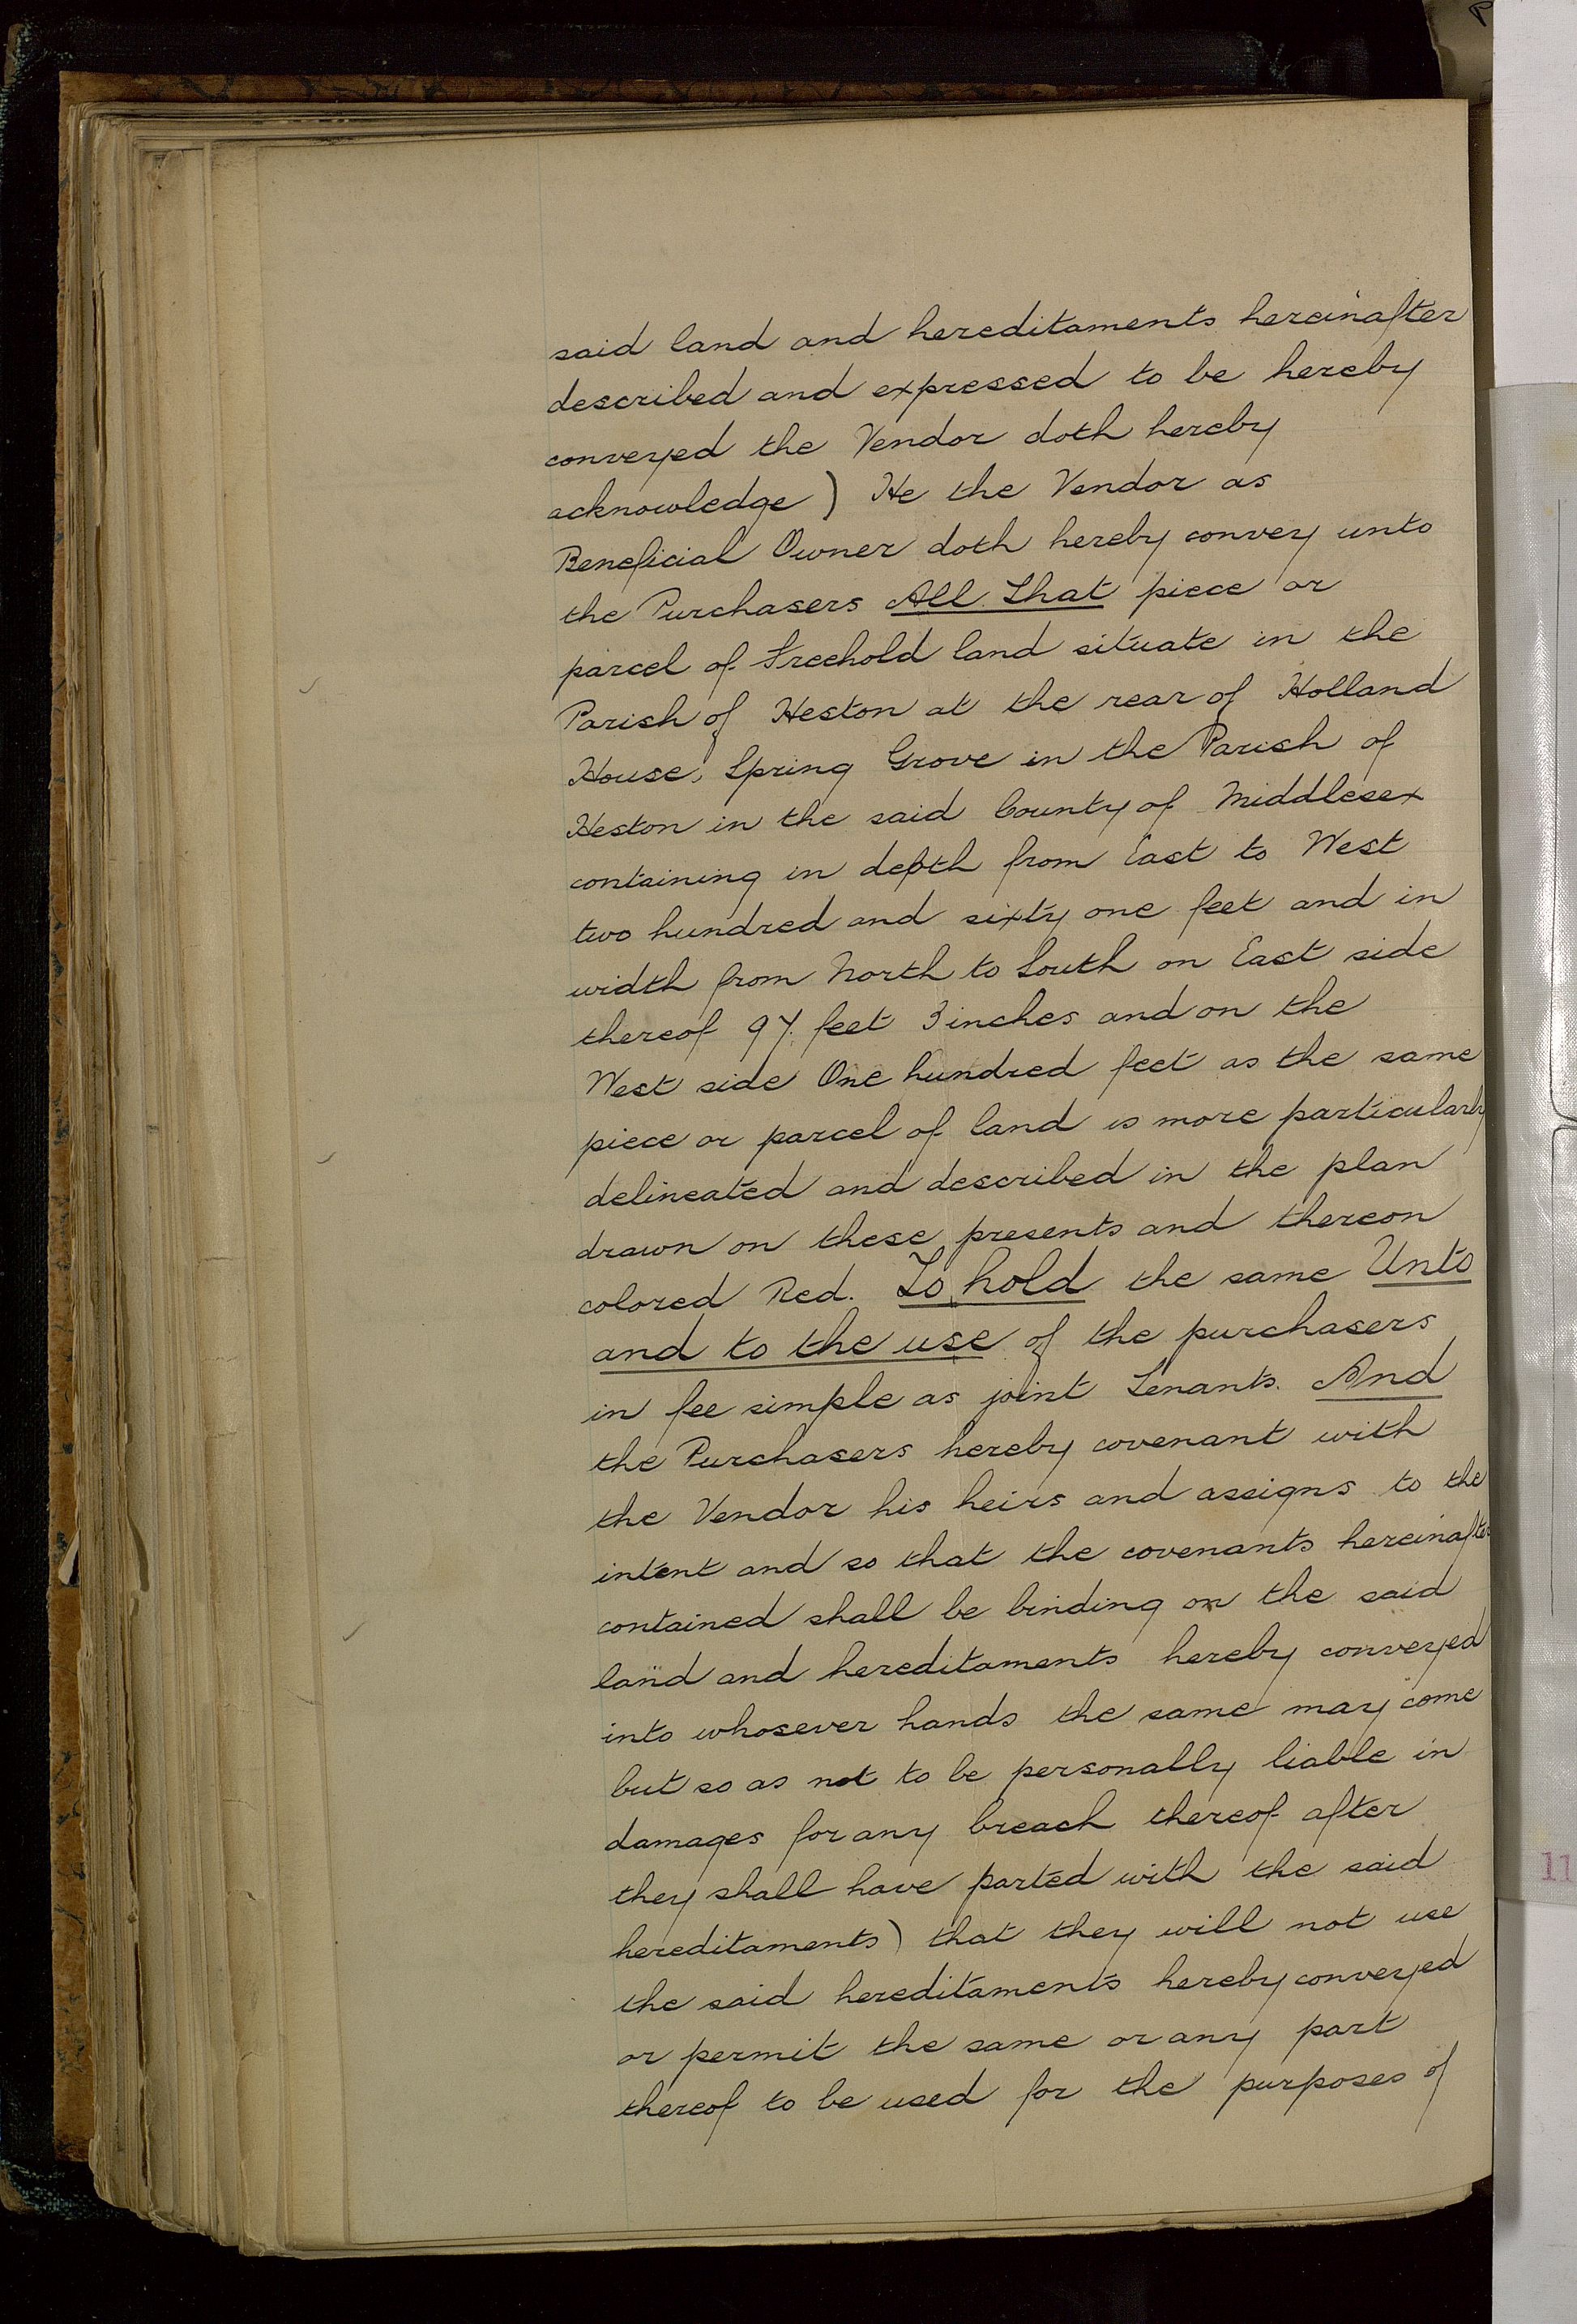 said land and hereditaments hereinafter
described and expressed to be hereby
conveyed the Vendor doth hereby
acknowledge) He the Vendor as
Beneficial Owner doth hereby convey unto
the Purchasers All That piece or
parcel of Freehold land situate in the
Parish of Heston at the rear of Holland
House, Spring Grove in the Parish of
Heston in the said County of Middlesex
containing in depth from East to West
two hundred and sixty one feet and in
width from North to South on East side
thereof 97 feet 3 inches and on the
West side One hundred feet as the same
piece or parcel of land is more particularly
delineated and described in the plan
drawn on these presents and thereon
colored Red. To hold the same Unto
and to the use of the purchasers
in fee simple as joint Tenants. And
the Purchasers hereby covenant with
the Vendor his heirs and assigns to the
intent and so that the covenants hereinafter
contained shall be binding on the said
land and hereditaments hereby conveyed
into whosever hands the same may come
but so as not to be personally liable in
damages for any breach thereof after
they shall have parted with the said
hereditaments) that they will not use
the said hereditaments hereby conveyed
or permit the same or any part
thereof to be used for the purposes of
11